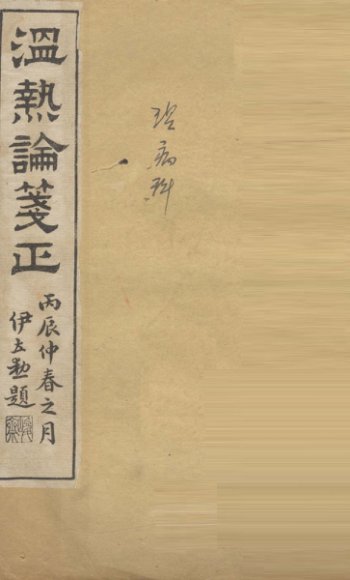 溫熱論箋正
丙辰仲春之月
伊立勲題
病科